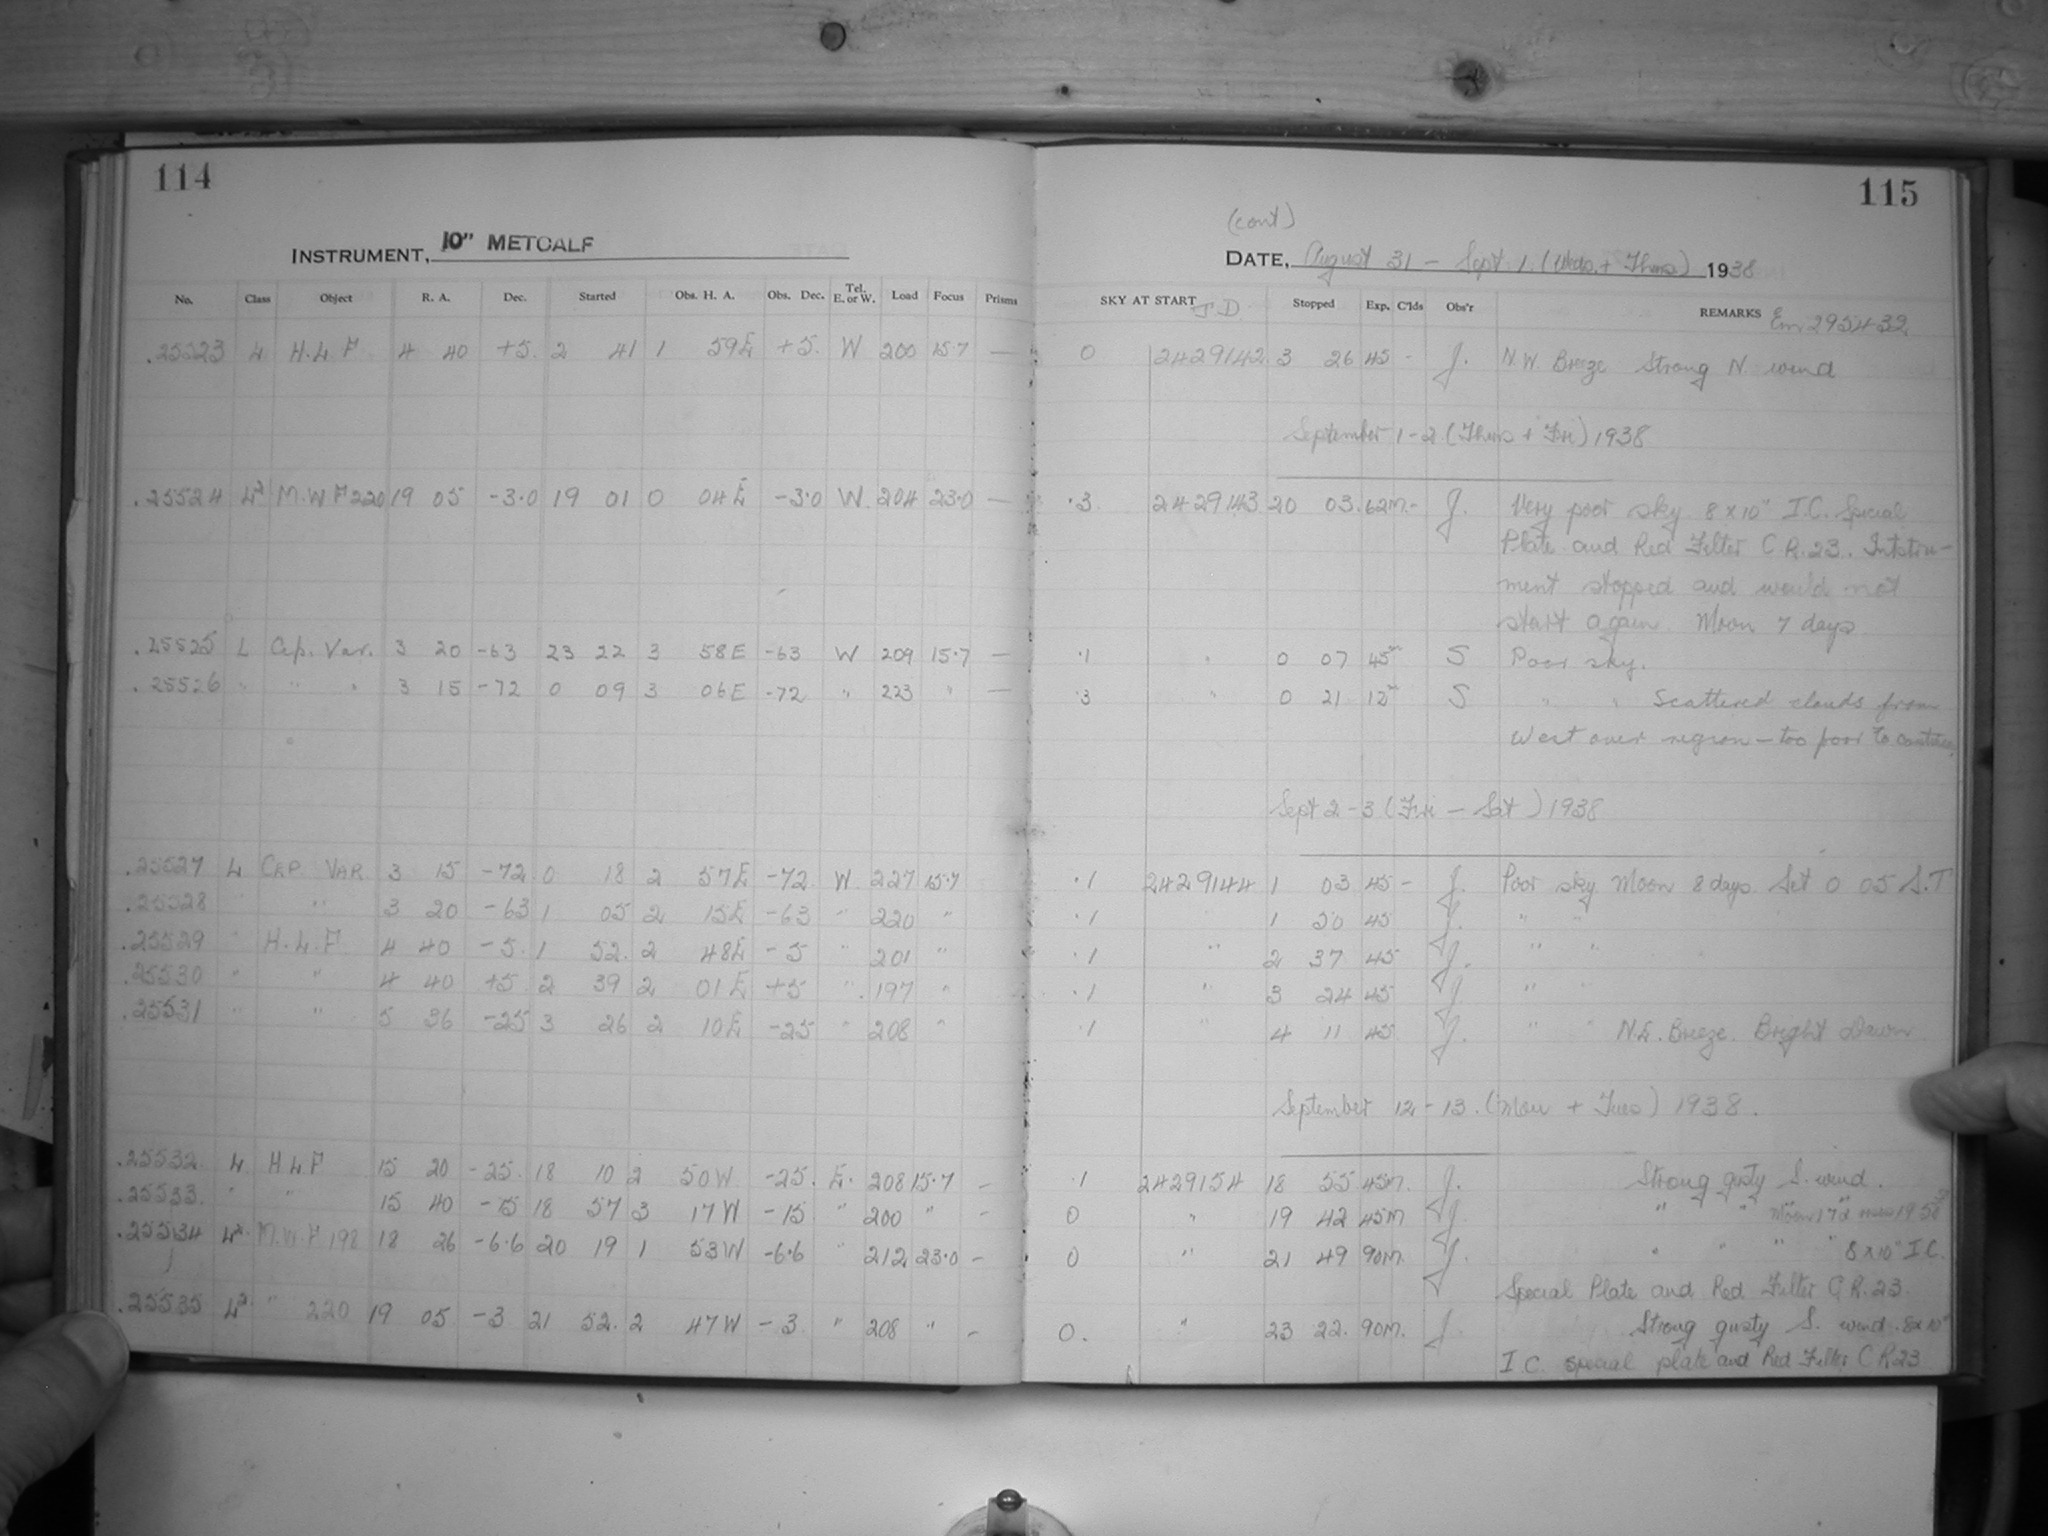 114
115
INSTRUMENT, 10" METCALF
(cont)
DATE, August 31 - Sept 1. (Weds. + Thurs) 1938
No. Class Object R. A. Dec. Started Obs. H. A. Obs. Dec. Tel. E. or W. Load Focus Prisms SKY AT START J.D. Stopped Exp. C'lds Obs'r REMARKS
.25523 L H.L.F 4 40 +5. 2 41 1 59E +5. W 200 15.7 — 0 2429142 3 26 45 - J. N.W. Breeze Strong N. wind
September 1-2 (Thurs + Fri) 1938
.25524 L² M.W.F 220 19 05 -3.0 19 01 0 04E -3.0 W. 204 23.0 — .3 2429143 20 03. 62M. - J. Very poor sky 8x10" I.C. Special
Plate and Red Filter C.R.23. Instru-
ment stopped and would not
start again. Moon 7 days
.25525 L Cep. Var. 3 20 -63 23 22 3 58E -63 W 209 15.7 — .1 " 0 07 45m S Poor sky.
.25526 " " " 3 15 -72 0 09 3 06E -72 " 223 " — .3 " 0 21 12m S " " Scattered clouds from
West over region - too poor to continue
Sept 2-3 (Fri - Sat) 1938
.25527 L CEP VAR 3 15 -72 0 18 2 57E -72 W 227 15.7 .1 2429144 1 03 45 - J. Poor sky Moon 8 days. Set 0 05 S.T
.25528 " 3 20 -63 1 05 2 15E -63 " 220 " .1 " 1 50 45 J. " "
.25529 " H.L.F 4 40 -5. 1 52. 2 48E -5 " 201 " .1 " 2 37 45 J. " "
.25530 " " 4 40 +5 2 39 2 01E +5 " 197 " .1 " 3 24 45 J " "
.25531 " " 5 36 -25 3 26 2 10E -25 " 208 " .1 " 4 11 45 J. " " N.E. Breeze. Bright Dawn
September 12-13. (Mon + Tues) 1938.
.25532 L H L F 15 20 -25. 18 10 2 50W -25. E. 208 15.7 - .1 2429154 18 55 45M. J. Strong gusty S. wind.
.25533. " " 15 40 -15 18 57 3 17W -15. " 200 " - 0 " 19 42 45M J. " " Moon 17d
.25534 L² M.W.F 198 18 26 -6.6 20 19 1 53W -6.6 " 212 23.0 - 0 " 21 49 90M. J. " " " " 8x10" I.C.
Special Plate and Red Filter C.R.23.
.25535 L² " 220 19 05 -3 21 52. 2 47W -3. " 208 " - 0. " 23 22. 90M. J. Strong gusty S. wind. 8x10"
I.C. special plate and Red Filter C R 23